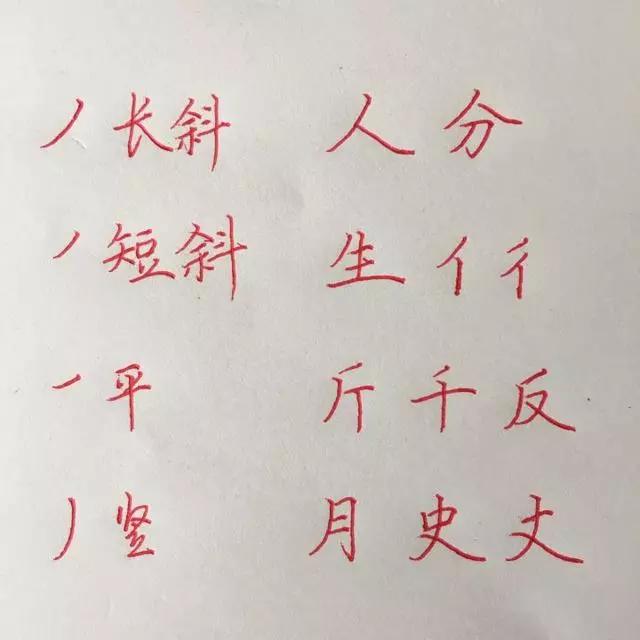 丿长斜 人 分
丿短斜 生 亻 彳
㇀平 斤 千 反
丿竖 月 史 丈